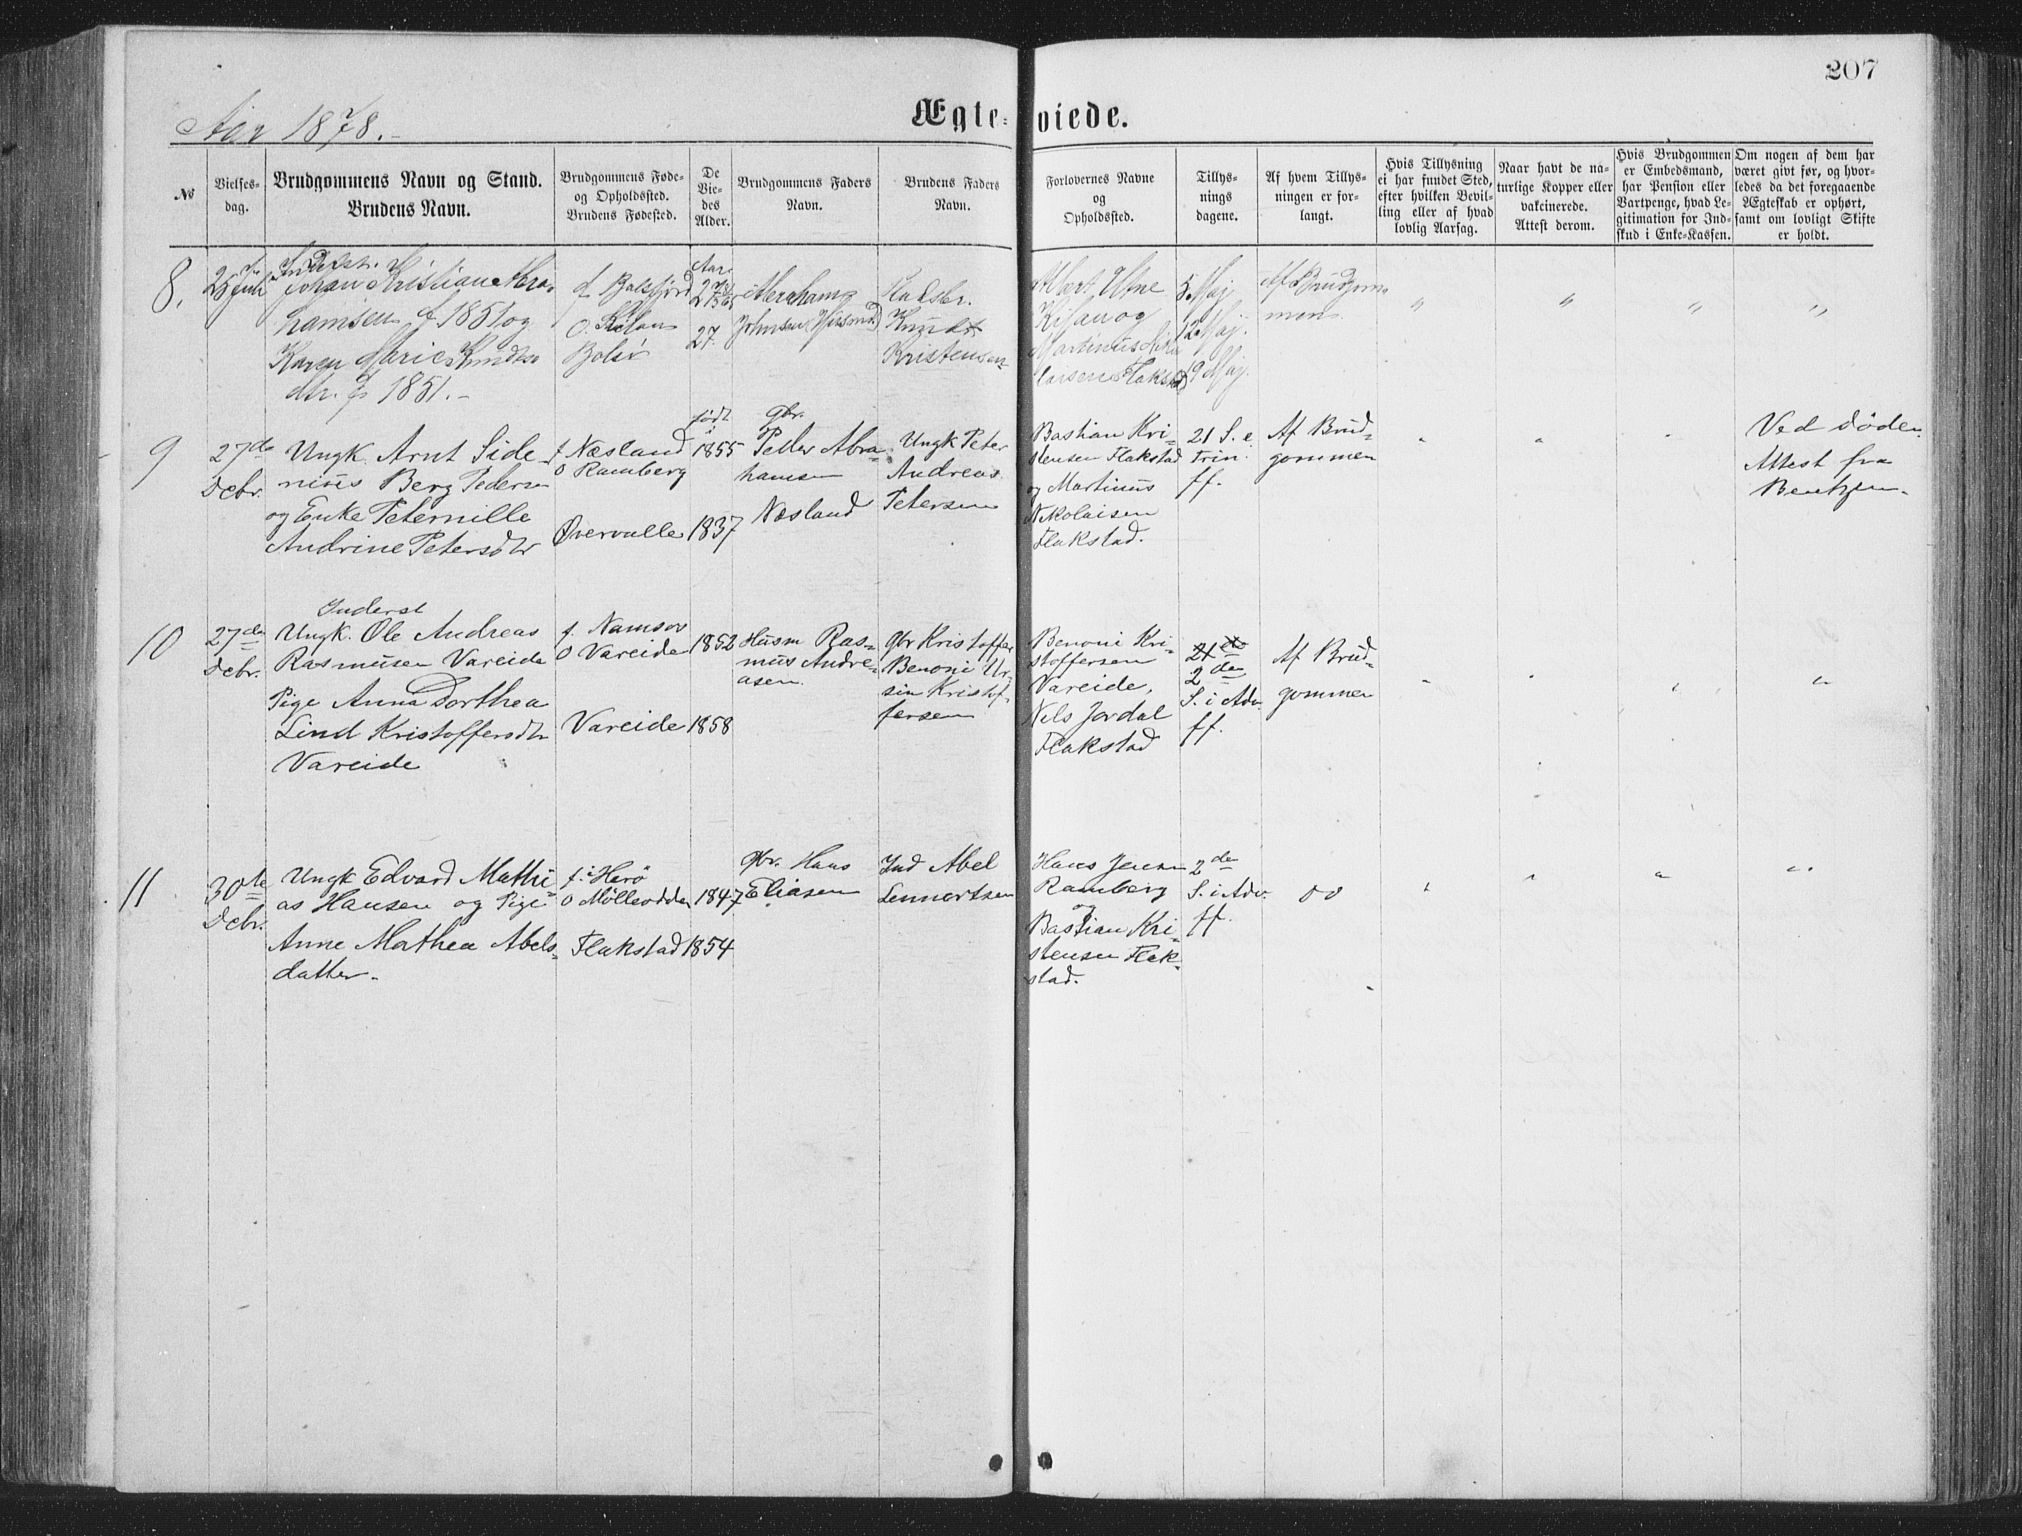 207
Aar 1878.
Ægteviede.
No
Vielses-
dag.
Brudgommens Navn og Stand.
Brudens Navn.
Brudgommens Føde-
og Opholdssted.
Brudens Fødested.
De
Vie-
des
Alder.
Brudgommens Faders
Navn.
Brudens Faders
Navn.
Forlovernes Navne
og
Opholdssted.
Tillys-
nings
dagene.
Af hvem Tillys-
ningen er for-
langt.
Hvis Tillysning
ei har fundet Sted,
efter hvilken Bevil-
ling eller af hvad
lovlig Aarsag.
Naar havt de na-
turlige Kopper eller
vakcinerede.
Attest derom.
Hvis Brudgommen
er Embedsmand,
har Pension eller
Vartpenge, hvad Le-
gitimation for Ind-
skud i Enke-Kassen.
Om nogen af dem har
været givt før, og hvor-
ledes da det foregaaende
Ægteskab er ophørt,
samt om lovligt Skifte
er holdt.
8.
Johan Kristian Abra-
hamsen f 1851 og
Karen Marie Knuds-
dtr. f 1851.-
f Balsfjord
O. Kilan
Bolsö
Aar
27
27
Abraham
Johnsen
Knudt
Kristensen
Albert
Kilan og
Martinus Niko
laisen Flakstad
5 Maj
12 Maj.
19 Maj.
Af Brudgom-
men
" " " "
9
27de
Debr.
Ungk. Arnt Side-
nius Berg Pedersen
og Enke Peternille
Andrine Petersdtr
f Næsland
O Ramberg
Øvervalle
født
1855
1837
Gbr.
Peder Abra-
hamsen
Næsland
Ungk Peter
Andreas
Petersen
Bastian Kri-
stensen Flakstad
og Martinus
Nikolaisen
Flakstad.
21 S. e.
Trin.
ff.
Af Brud-
gommen
" " "
Ved döden
Attest fra
Bentzen.
10
27de
Debr.
Inderst
Ungk. Ole Andreas
Rasmusen Vareide
Pige Anna Dorthea
Lind Kristoffersdtr
Vareide
f. Namsos
O Vareide
Vareide
1852
1858
Husm Ras-
mus Andre-
asen.
Gbr Kristoffer
Benoni Ur-
sin Kristof-
fersen
Benoni Kri-
stoffersen
Vareide,
Nils Jordal
Flakstad
2den
S. i Adv.
ff.
Af Brud-
gommen
" " " "
11
30te
Debr.
Ungk Edvard Mathi-
as Hansen og Pige
Anne Mathea Abels-
datter.
f. Herö
O Mölleodden
Flakstad
1847
1854
Gbr. Hans
Eliasen
Ind Abel
Lennertsen
Hans Jensen
Ramberg
og
Bastian Kri-
stensen Flak-
stad.
2den
S. i Adv.
ff.
" " " "